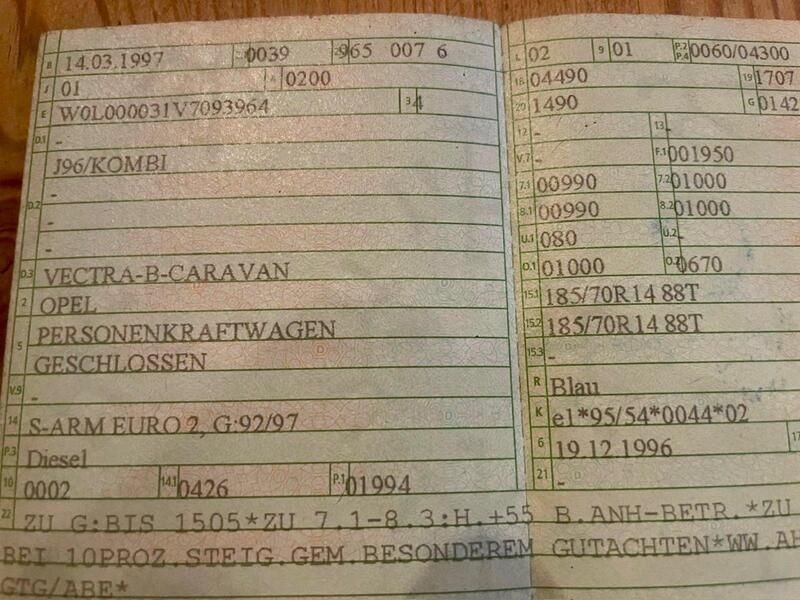 B 14.03.1997 0039 965 007 6
J 01 4 0200
E W0L000031V7093964 3 4
D.1 -
D.2 J96/KOMBI
-
-
-
D.3 VECTRA-B-CARAVAN
2 OPEL
5 PERSONENKRAFTWAGEN
GESCHLOSSEN
V.9 -
14 S-ARM EURO 2, G:92/97
P.3 Diesel
10 0002 14.1 0426 P.1 01994
L 02 9 01 P.2 P.4 0060/04300
18 04490 19 1707
20 1490 G 0142
12 - 13 -
V.7 - F.1 001950
7.1 00990 7.2 01000
8.1 00990 8.2 01000
U.1 080 U.2 -
O.1 01000 O.2 0670
15.1 185/70R14 88T
15.2 185/70R14 88T
15.3 -
R Blau
K e1*95/54*0044*02
6 19.12.1996 17
21 -
22 ZU G:BIS 1505*ZU 7.1-8.3:H.+55 B.ANH-BETR.*ZU
BEI 10PROZ.STEIG.GEM.BESONDEREM GUTACHTEN*WW.AH
GTG/ABE*